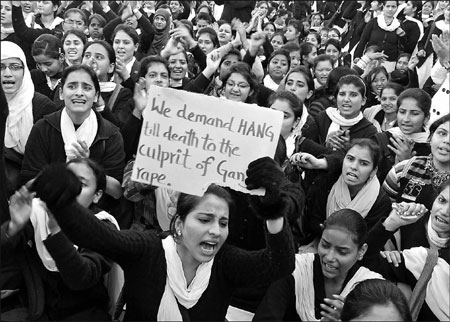 We demand HANG
till death to the
culprit of Gan
rape.